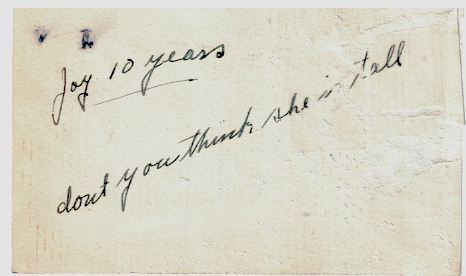 Joy 10 years
dont you think she is tall